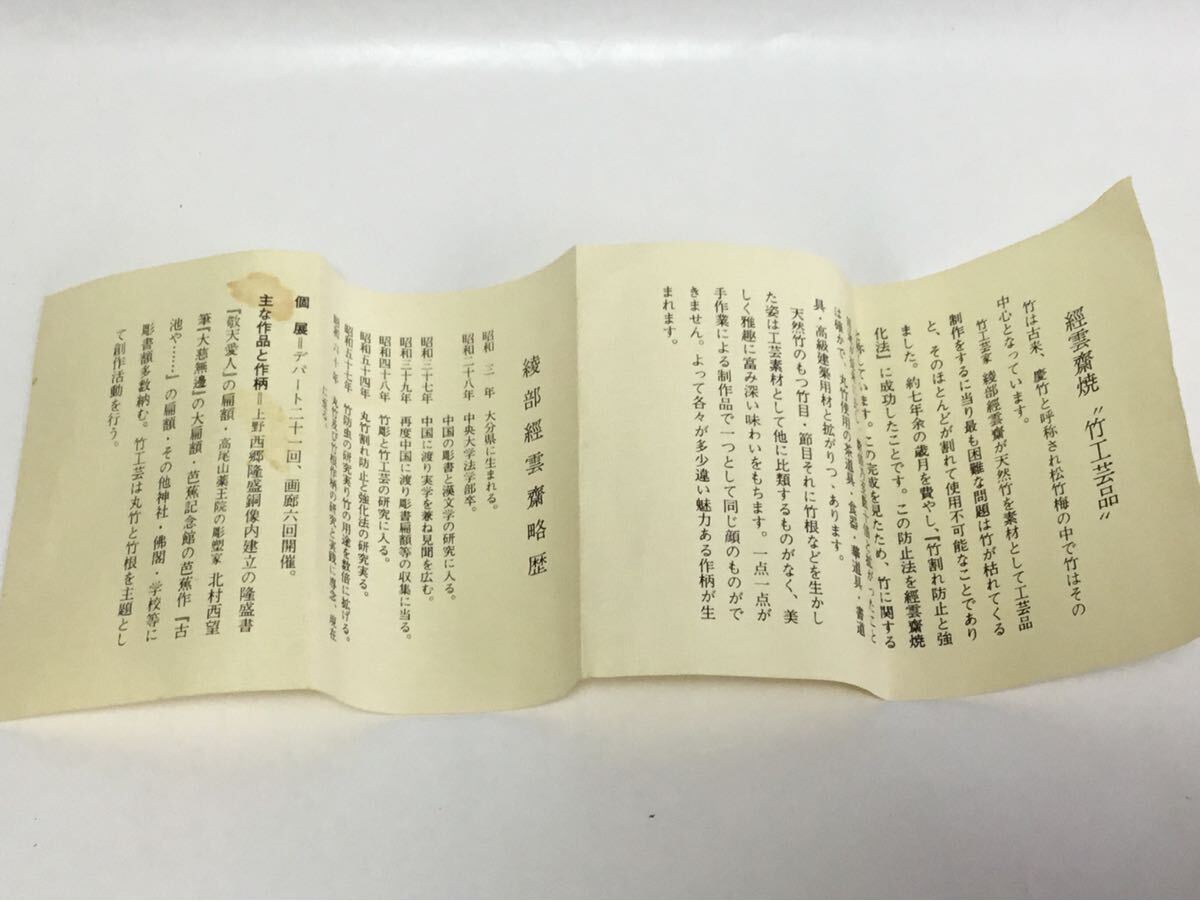 經雲齋焼〝竹工芸品〟
竹は古来、慶竹と呼称され松竹梅の中で竹はその
中心となっています。
竹工芸家 綾部經雲齋が天然竹を素材として工芸品
制作をするに当り最も困難な問題は竹が枯れてくる
と、そのほとんどが割れて使用不可能なことであり
ました。約七年余の歳月を費やし、『竹割れ防止と強
化法』に成功したことです。この防止法を經雲齋焼
と称しています。この完成を見たため、竹に関する
は確かで、丸竹使用の茶道具・食器・華道具・書道
具・高級建築用材と拡がりつゝあります。
天然竹のもつ竹目・節目それに竹根などを生かし
た姿は工芸素材として他に比類するものがなく、美
しく雅趣に富み深い味わいをもちます。一点一点が
手作業による制作品で一つとして同じ顔のものがで
きません。よって各々が多少違い魅力ある作柄が生
まれます。
綾部經雲齋略歴
昭和 三 年 大分県に生まれる。
昭和二十八年 中央大学法学部卒。
中国の彫書と漢文学の研究に入る。
昭和三十七年 中国に渡り実学を兼ね見聞を広む。
昭和三十九年 再度中国に渡り彫書扁額等の収集に当る。
昭和四十八年 竹彫と竹工芸の研究に入る。
昭和五十四年 丸竹割れ防止と強化法の研究実る。
昭和五十七年 竹防虫の研究実り竹の用途を数倍に拡げる。
昭和六十年 丸竹及び竹根作柄の研究と実践に専念、現在
個 展＝デパート二十一回、画廊六回開催。
主な作品と作柄＝上野西郷隆盛銅像内建立の隆盛書
『敬天愛人』の扁額・高尾山薬王院の彫塑家 北村西望
筆『大慈無邊』の大扁額・芭蕉記念館の芭蕉作『古
池や……』の扁額・その他神社・佛閣・学校等に
彫書額多数納む。竹工芸は丸竹と竹根を主題とし
て創作活動を行う。